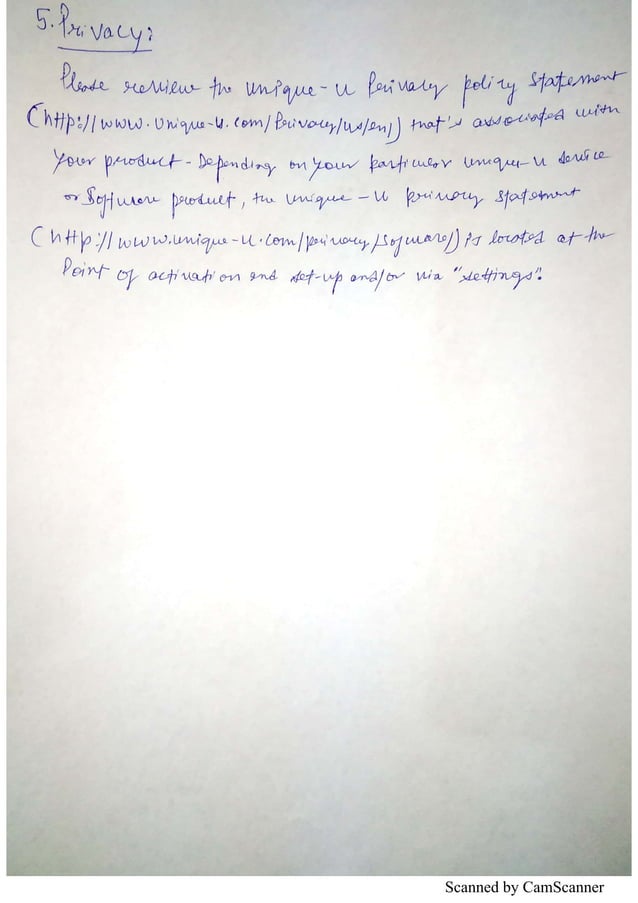 5. Privacy:
Please review the unique-u Privacy policy statement
(http://www.unique-u.com/privacy/us/en/) that's associated with
your product - Depending on your particular unique-u service
or Software product, the unique-u privacy statement
(http://www.unique-u.com/privacy/software/) is located at the
Point of activation and set-up and/or via "settings".
Scanned by CamScanner